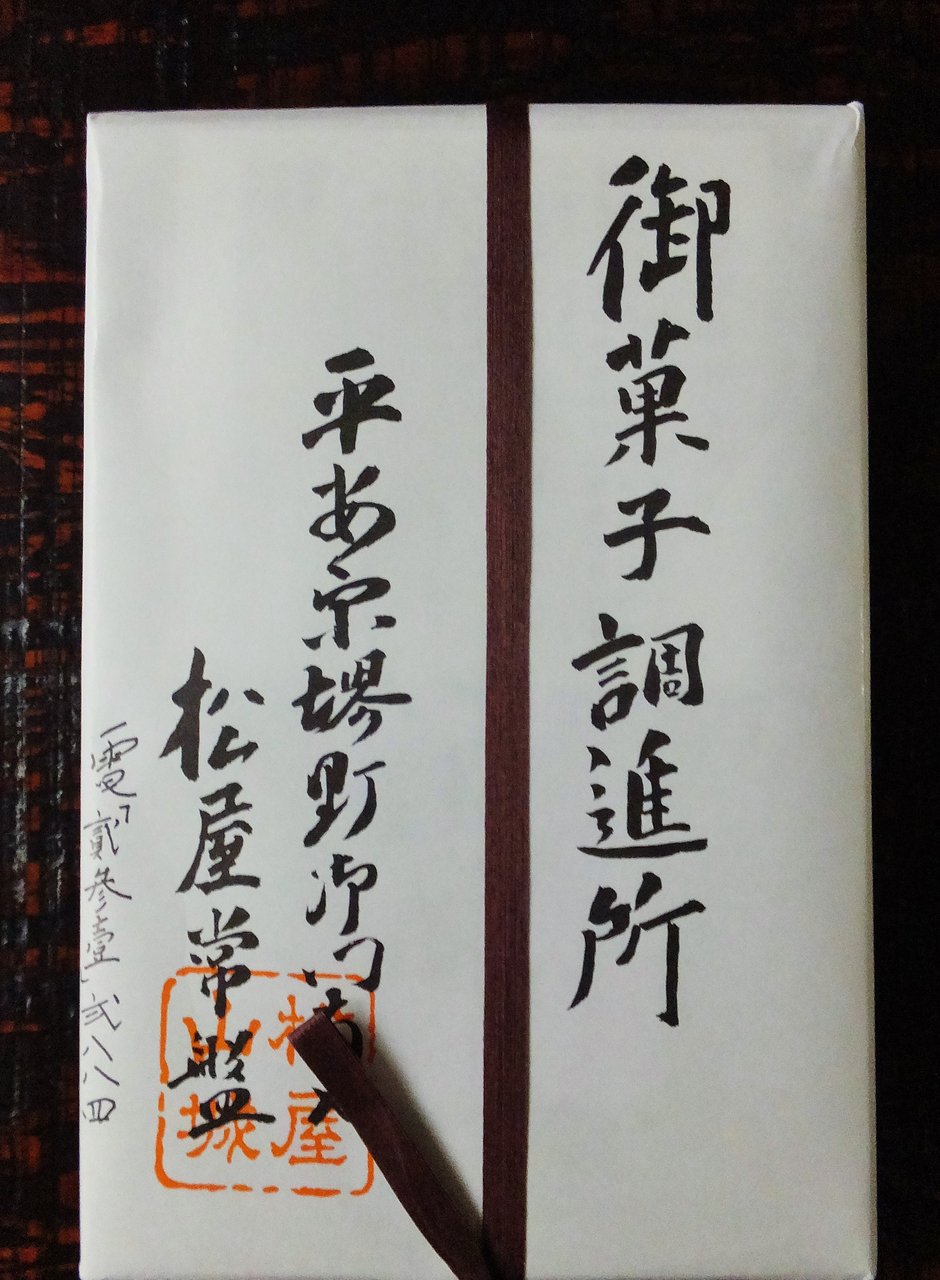 御菓子調進所
平安京堺町御門南
松屋常盤
電 貳參壹 弐八八四
松屋
山城